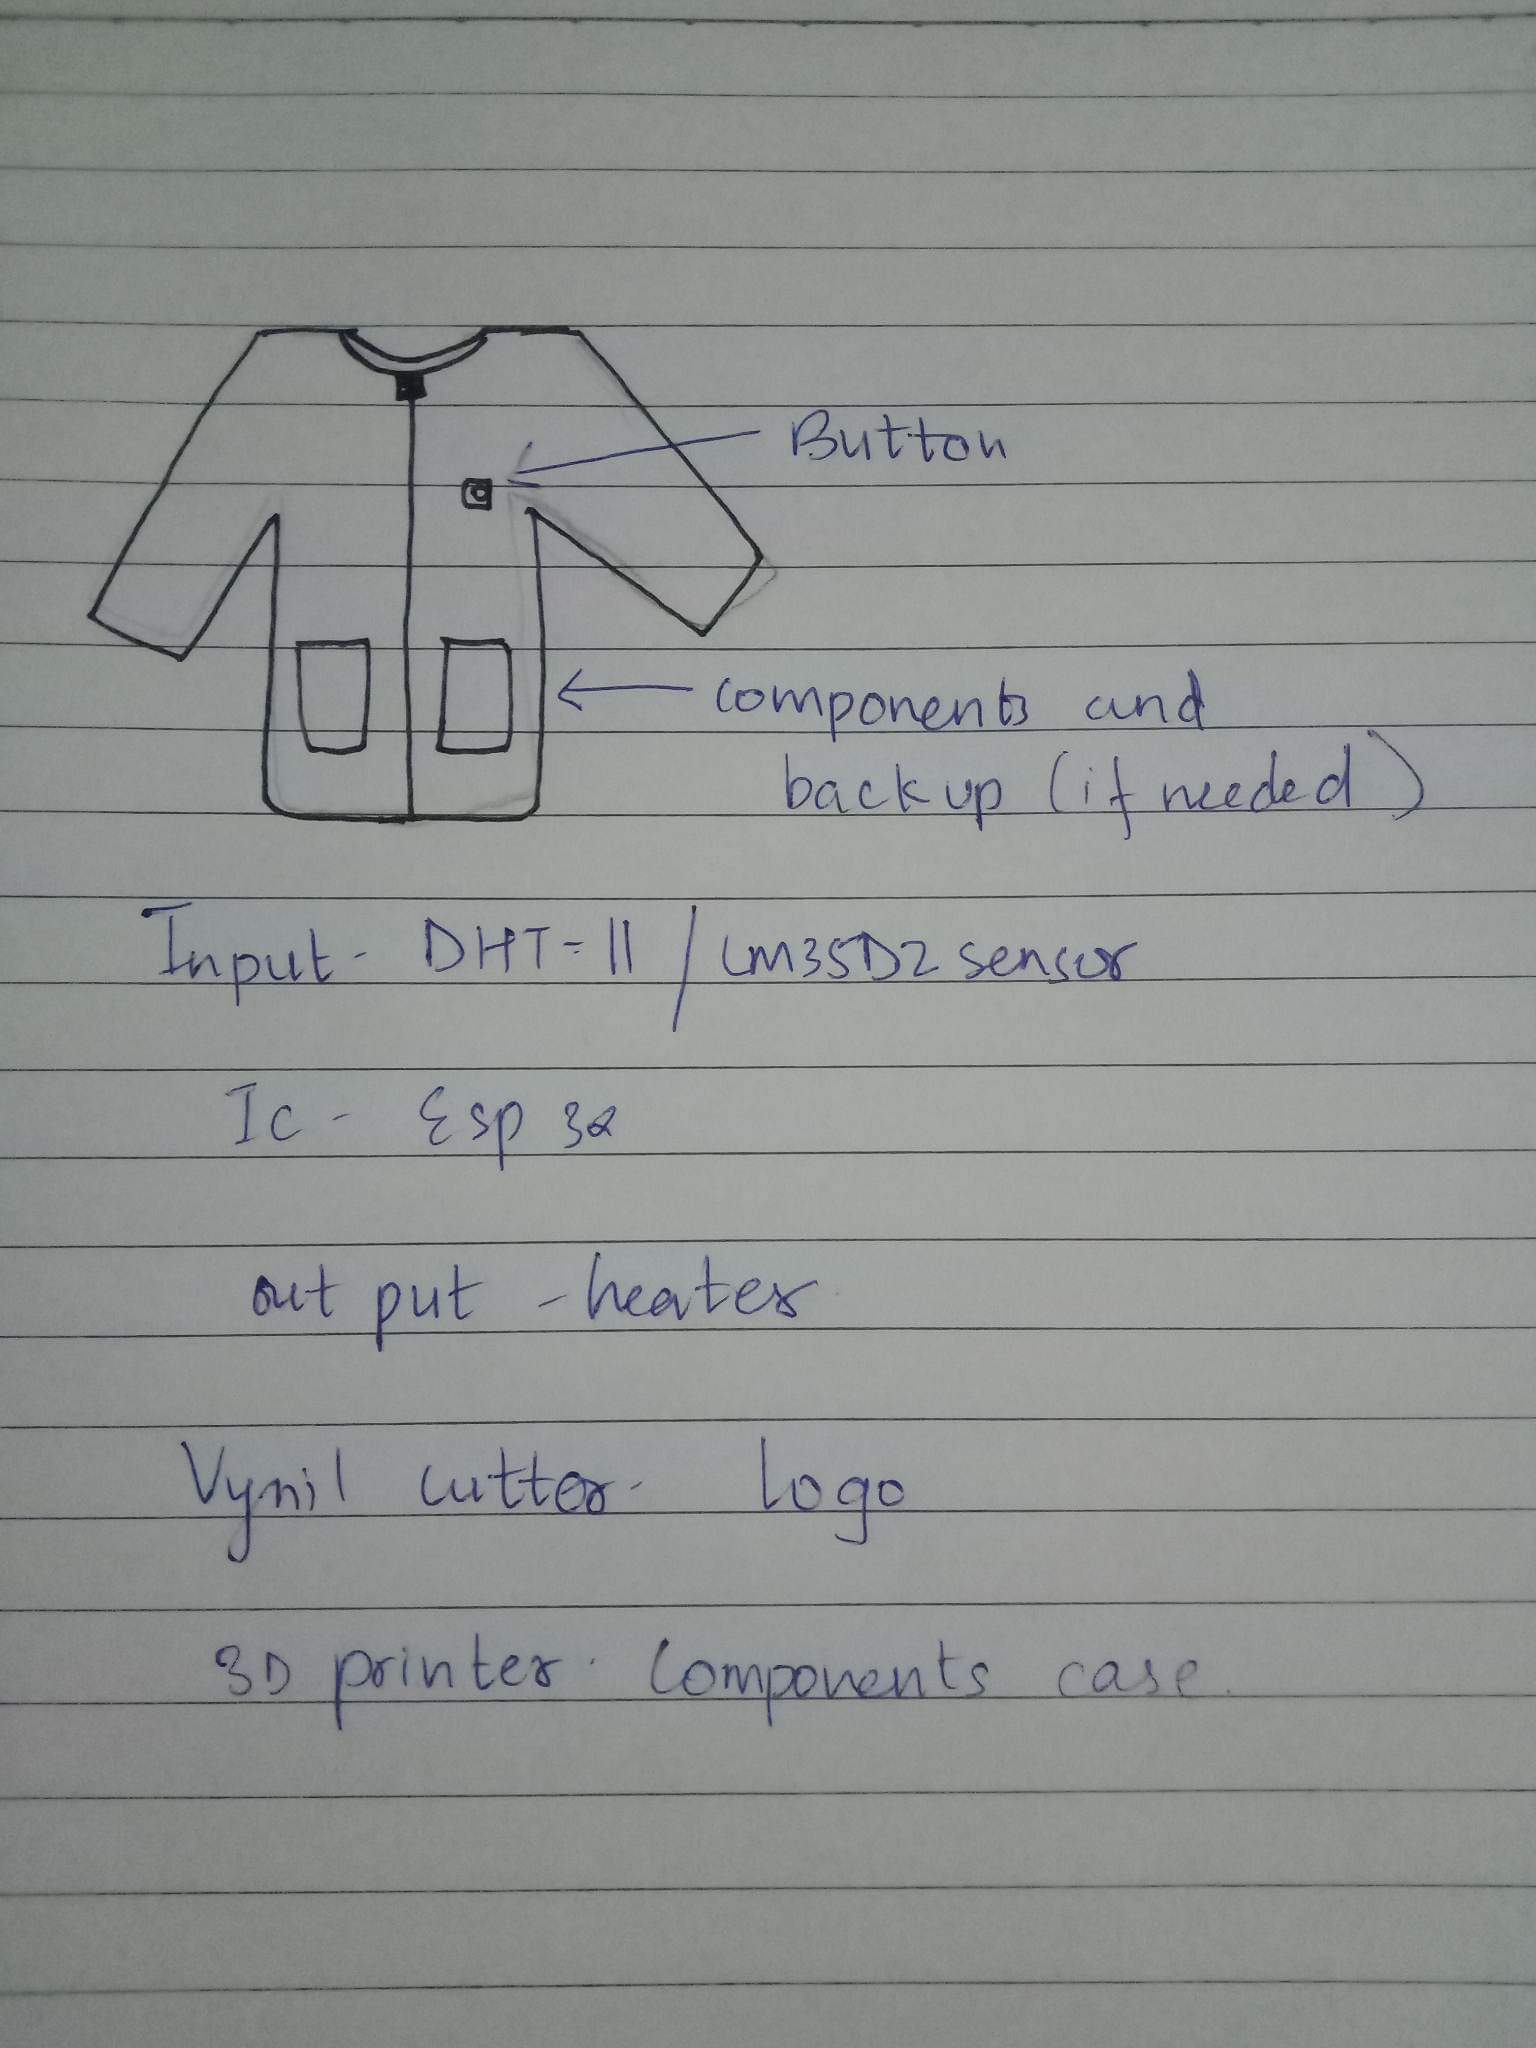 Button
components and
backup (if needed)
Input - DHT-11 / LM35DZ sensor
Ic - Esp 32
out put - heater
Vynil cutter - Logo
3D printer - Components case.